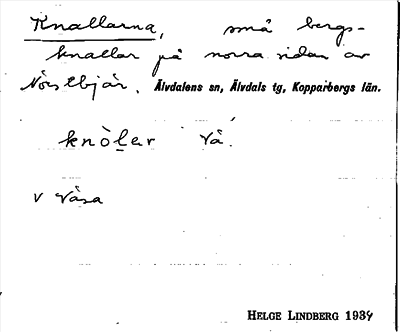 Knallarna, små bergs-
knallar på norra sidan av
Älvdalens sn, Älvdals tg, Kopparbergs län.
knòler Vå.
V Våsa
HELGE LINDBERG 1937